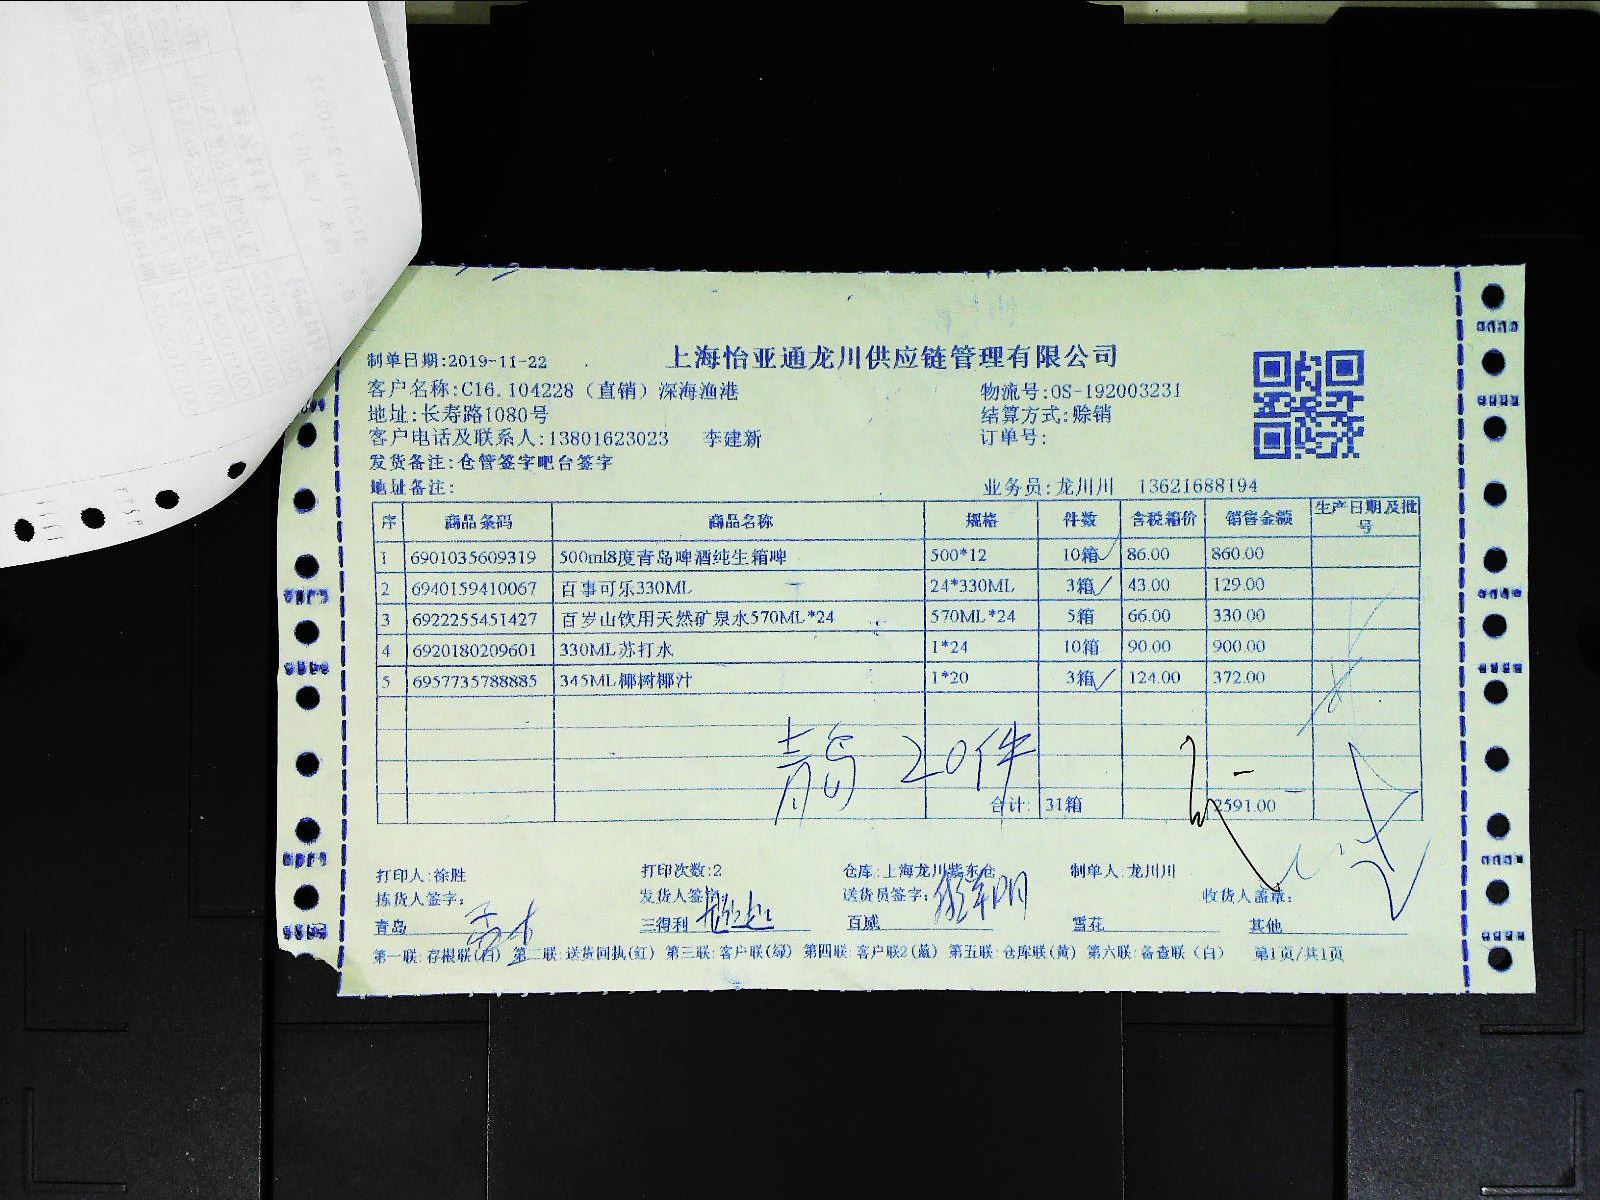 上海怡亚通龙川供应链管理有限公司
制单日期:2019-11-22
客户名称:C16.104228（直销）深海渔港 物流号:OS-192003231
地址:长寿路1080号 结算方式:赊销
客户电话及联系人:13801623023 李建新 订单号:
发货备注:仓管签字吧台签字
地址备注: 业务员:龙川川 13621688194
序 商品条码 商品名称 规格 件数 含税箱价 销售金额 生产日期及批号
1 6901035609319 500ml8度青岛啤酒纯生箱啤 500*12 10箱 86.00 860.00
2 6940159410067 百事可乐330ML 24*330ML 3箱 43.00 129.00
3 6922255451427 百岁山饮用天然矿泉水570ML*24 570ML*24 5箱 66.00 330.00
4 6920180209601 330ML苏打水 1*24 10箱 90.00 900.00
5 6957735788885 345ML椰树椰汁 1*20 3箱 124.00 372.00
青岛 20件
合计: 31箱 2591.00
打印人:徐胜 打印次数:2 仓库:上海龙川紫东仓 制单人:龙川川
拣货人签字: 发货人签字: 送货员签字: 收货人盖章:
青岛 三得利 百威 雪花 其他
第一联:存根联(白) 第二联:送货回执(红) 第三联:客户联(绿) 第四联:客户联2(蓝) 第五联:仓库联(黄) 第六联:备查联（白） 第1页/共1页